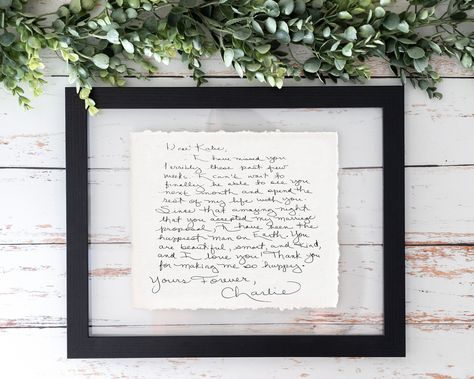 Dear Katie,
I have missed you
terribly these past few
weeks. I can't wait to
finally be able to see you
next month and spend the
rest of my life with you.
Since that amazing night
that you accepted my marriage
proposal, I have been the
happiest man on Earth. You
are beautiful, smart, and kind,
and I love you! Thank you
for making me so happy.
Yours Forever,
Charlie